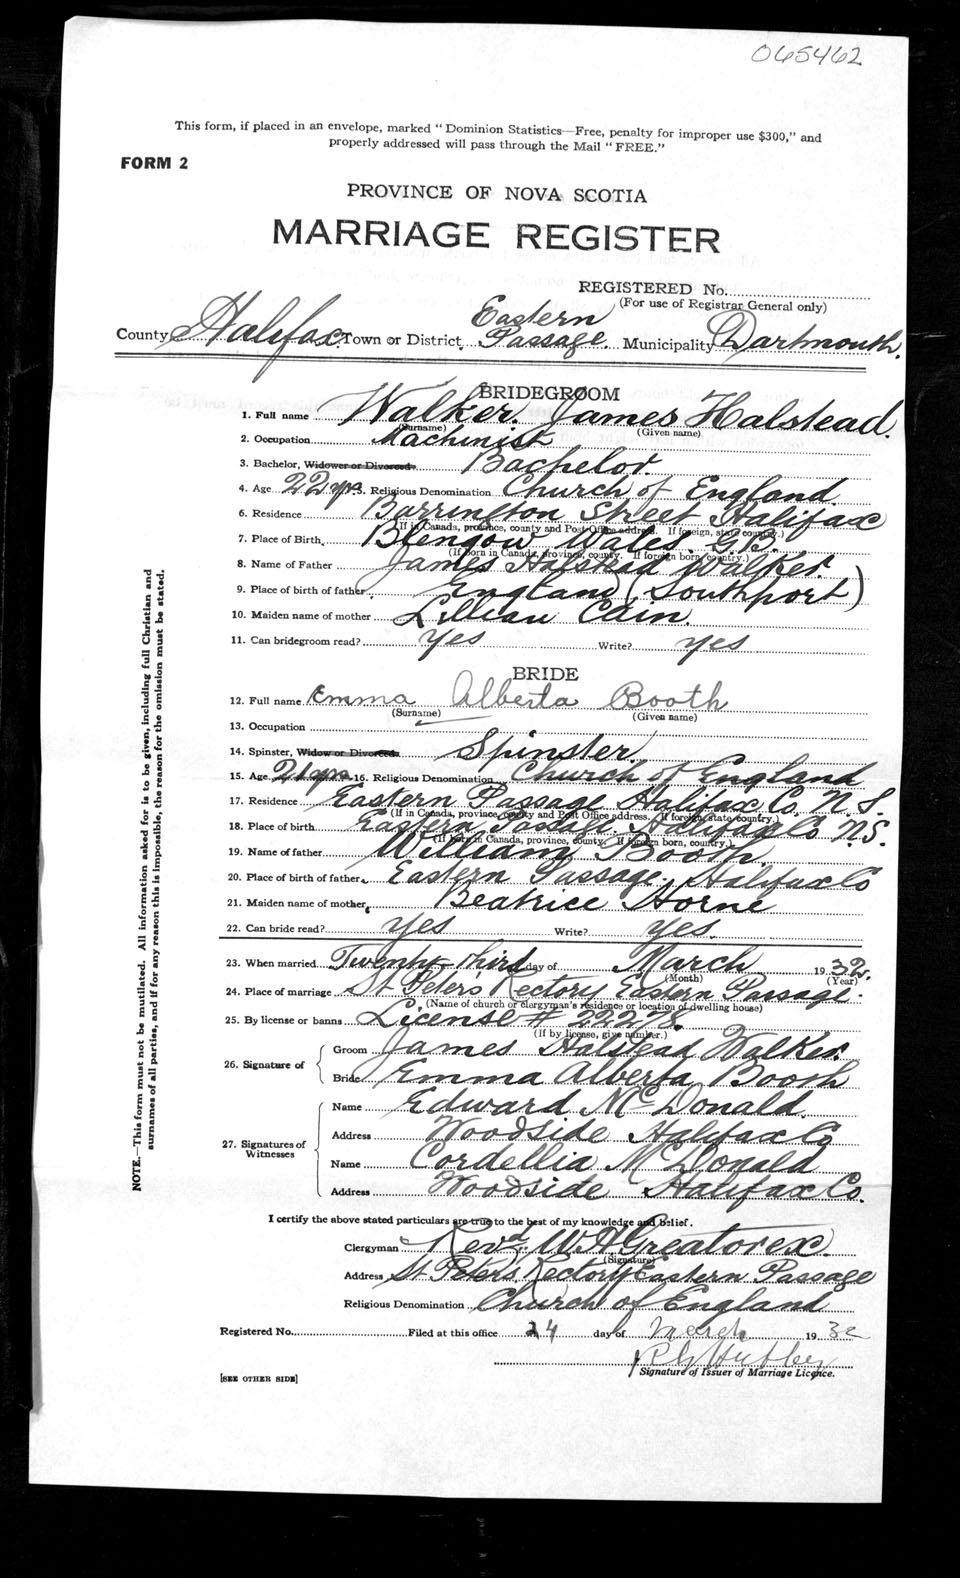 065462
This form, if placed in an envelope, marked "Dominion Statistics—Free, penalty for improper use $300," and
properly addressed will pass through the Mail "FREE."
FORM 2
PROVINCE OF NOVA SCOTIA
MARRIAGE REGISTER
REGISTERED No.
(For use of Registrar General only)
County Halifax. Town or District. Eastern Passage. Municipality Dartmouth.
BRIDEGROOM
1. Full name Walker. James Halstead.
(Surname) (Given name)
2. Occupation Machinist
3. Bachelor, Widower or Divorced Bachelor.
4. Age 22 yrs 5. Religious Denomination Church of England
6. Residence Barrington Street Halifax
(If in Canada, province, county and Post Office address. If foreign, state country.)
7. Place of Birth. Wales. G.B.
(If born in Canada, province, county. If foreign born, country.)
8. Name of Father James Halstead Walker.
9. Place of birth of father England (Southport)
10. Maiden name of mother Lillian Cain.
11. Can bridegroom read? yes Write? yes
BRIDE
12. Full name Emma Alberta Booth
(Surname) (Given name)
13. Occupation
14. Spinster, Widow or Divorced Spinster.
15. Age 21 yrs 16. Religious Denomination Church of England
17. Residence Eastern Passage Halifax Co. N.S.
(If in Canada, province, county and Post Office address. If foreign, state country.)
18. Place of birth Eastern Passage. Halifax Co N.S.
(If born in Canada, province, county. If foreign born, country.)
19. Name of father William Booth.
20. Place of birth of father Eastern Passage. Halifax Co
21. Maiden name of mother Beatrice Horne
22. Can bride read? yes Write? yes.
23. When married Twenty third day of March 1932.
(Month) (Year)
24. Place of marriage St Peter's Rectory Eastern Passage.
(Name of church or clergyman's residence or location of dwelling house)
25. By license or banns License # 22278.
(If by license, give number.)
26. Signature of
Groom James Halstead Walker.
Bride Emma Alberta Booth
27. Signatures of Witnesses
Name Edward McDonald.
Address Woodside Halifax Co
Name Cordellia McDonald
Address Woodside Halifax Co.
I certify the above stated particulars are true to the best of my knowledge and belief.
Clergyman Revd. W A Greatorex.
(Signature)
Address St Peters. Rectory Eastern Passage
Religious Denomination Church of England
Registered No. Filed at this office 24 day of March 1932
Signature of Issuer of Marriage Licence.
[SEE OTHER SIDE]
NOTE.—This form must not be mutilated. All information asked for is to be given, including full Christian and
surnames of all parties, and if for any reason this is impossible, the reason for the omission must be stated.